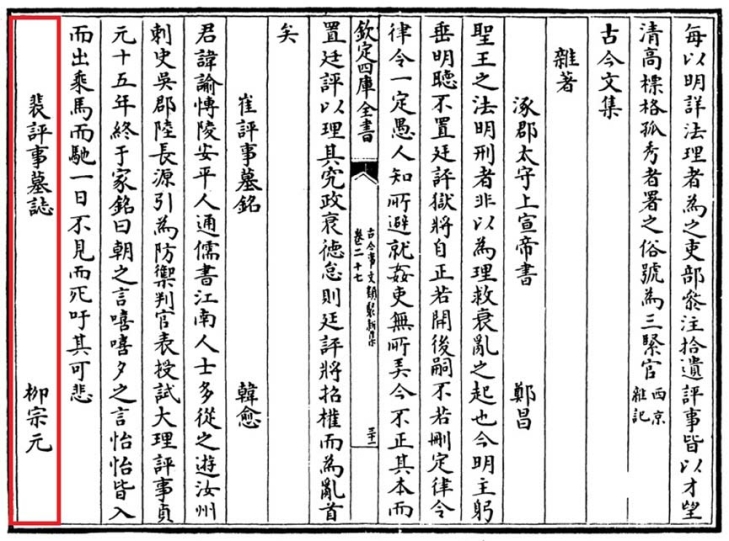 每以明詳法理者為之吏部叅注拾遺評事皆以才望
清高標格孤秀者署之俗號為三緊官西京雜記
古今文集
雜著
涿郡太守上宣帝書 鄭昌
聖王之法明刑者非以為理救衰亂之起也今明主躬
垂明聽不置廷評獄將自正若開後嗣不若刪定律令
律令一定愚人知所避就姦吏無所弄今不正其本而
欽定四庫全書
古今事文類聚新集
卷二十七
置廷評以理其究政衰徳怠則廷評將招權而為亂首
矣
崔評事墓銘 韓愈
君諱諭慱陵安平人通儒書江南人士多從之遊汝州
刺史吳郡陸長源引為防禦判官表授試大理評事貞
元十五年終于家銘曰朝之言嘻嘻夕之言怡怡皆入
而出乘馬而馳一日不見而死吁其可悲
裴評事墓誌 柳宗元